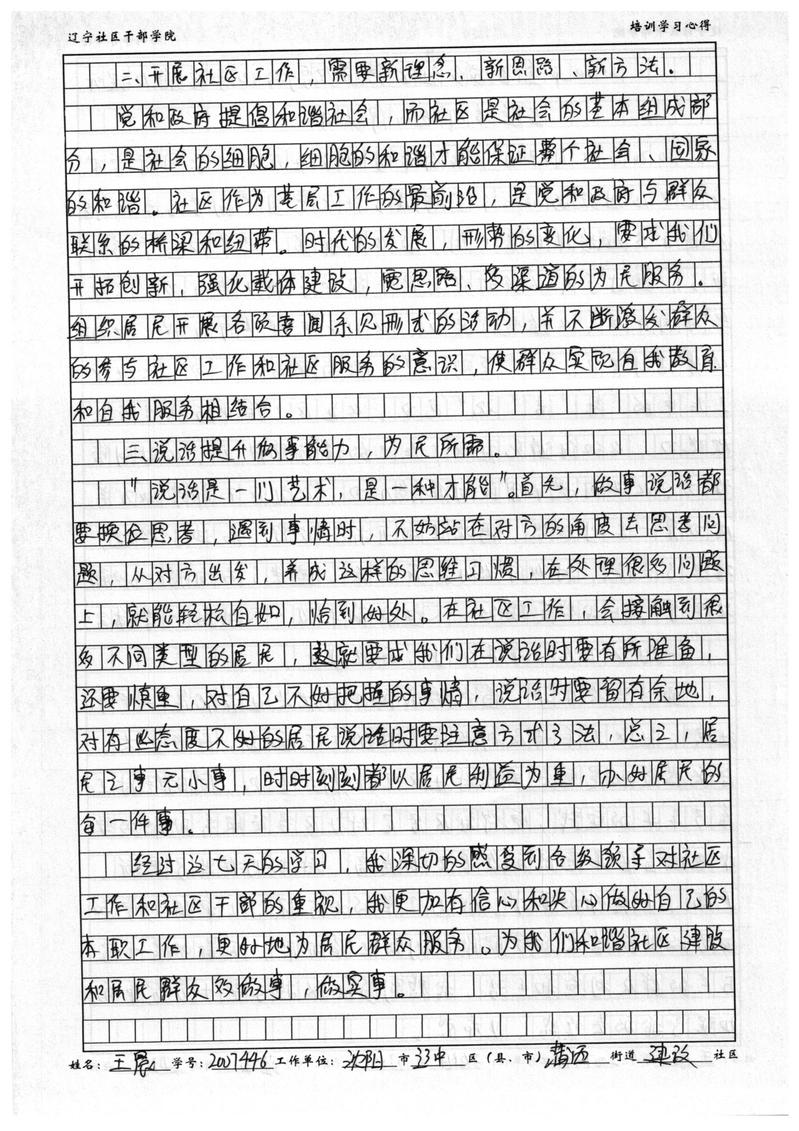 辽宁社区干部学院 培训学习心得
二、开展社区工作，需要新理念、新思路、新方法。
党和政府提倡和谐社会，而社区是社会的基本组成部
分，是社会的细胞，细胞的和谐才能保证整个社会、国家
的和谐。社区作为基层工作的最前沿，是党和政府与群众
联系的桥梁和纽带。时代的发展，形势的变化，要求我们
开拓创新，强化载体建设，宽思路、多渠道的为民服务。
组织居民开展各项喜闻乐见形式的活动，并不断激发群众
的参与社区工作和社区服务的意识，使群众实现自我教育
和自我服务相结合。
三、说话提升做事能力，为民所需。
"说话是一门艺术，是一种才能"。首先，做事说话都
要换位思考，遇到事情时，不妨站在对方的角度去思考问
题，从对方出发，养成这样的思维习惯，在处理很多问题
上，就能轻松自如，恰到好处。在社区工作，会接触到很
多不同类型的居民，这就要求我们在说话时要有所准备，
还要慎重，对自己不好把握的事情，说话时要留有余地，
对有些态度不好的居民说话时要注意方式方法，总之，居
民之事无小事，时时刻刻都以居民利益为重，办好居民的
每一件事。
经过这七天的学习，我深切的感受到各级领导对社区
工作和社区干部的重视，我更加有信心和决心做好自己的
本职工作，更好地为居民群众服务。为我们和谐社区建设
和居民群众效做事，做实事。
姓名：王晨 学号：2007446 工作单位：沈阳 市 区（县、市） 街道 建设 社区